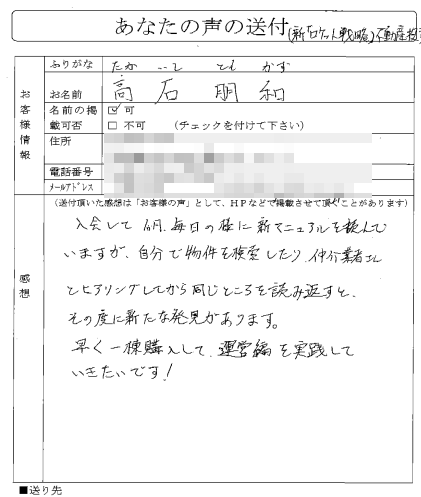 あなたの声の送付(新ロケット戦略)不動産投
ふりがな たか いし とも かず
お客様情報
お名前 高石 朋和
名前の掲載可否 ☑ 可
□ 不可 (チェックを付けて下さい)
住所
電話番号
メールアドレス
(送付頂いた感想は「お客様の声」として、HPなどで掲載させて頂くことがあります)
感想
入会して1ヵ月、毎日の様に新マニュアルを読んで
いますが、自分で物件を検索したり、仲介業者さん
とヒアリングしてから同じところを読み返すと、
その度に新たな発見があります。
早く一棟購入して、運営編を実践して
いきたいです!
■送り先